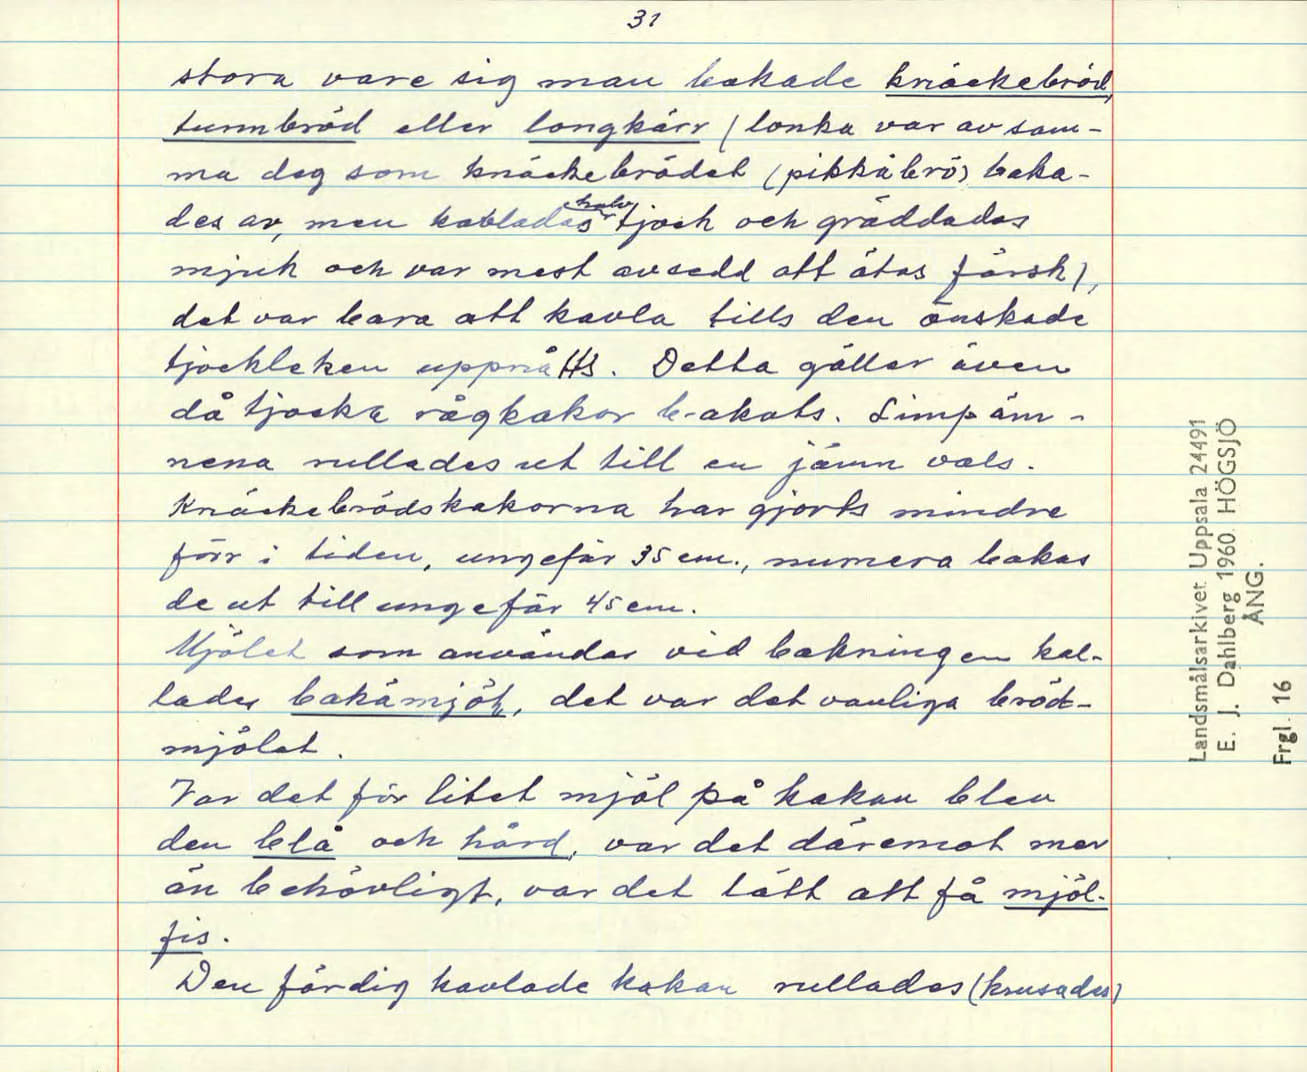 31
stora vare sig man bakade knäckebröd,
tunnbröd eller longkärr (lonka var av sam-
ma deg som knäckebrödet (pikkåbrö) baka-
des av, men kavlades halvtjock och gräddades
mjuk och var mest avsedd att ätas färsk),
det var bara att kavla tills den önskade
tjockleken uppnåtts. Detta gäller även
då tjocka rågkakor bakats. Limpäm-
nena rullades ut till en jämn vals.
Knäckebrödskakorna har gjorts mindre
förr i tiden, ungefär 35 cm., numera bakas
de ut till ungefär 45 cm.
Mjölet som användes vid bakningen kal-
lades bakämjöł, det var det vanliga bröd-
mjölet.
Var det för litet mjöl på kakan blev
den blå och hård, var det däremot mer
än behövligt, var det lätt att få mjöl-
fis.
Den färdig kavlade kakan rullades (krusades)
Landsmålsarkivet Uppsala 24491
E. J. Dahlberg 1960. HÖGSJÖ
ÅNG.
Frgl. 16